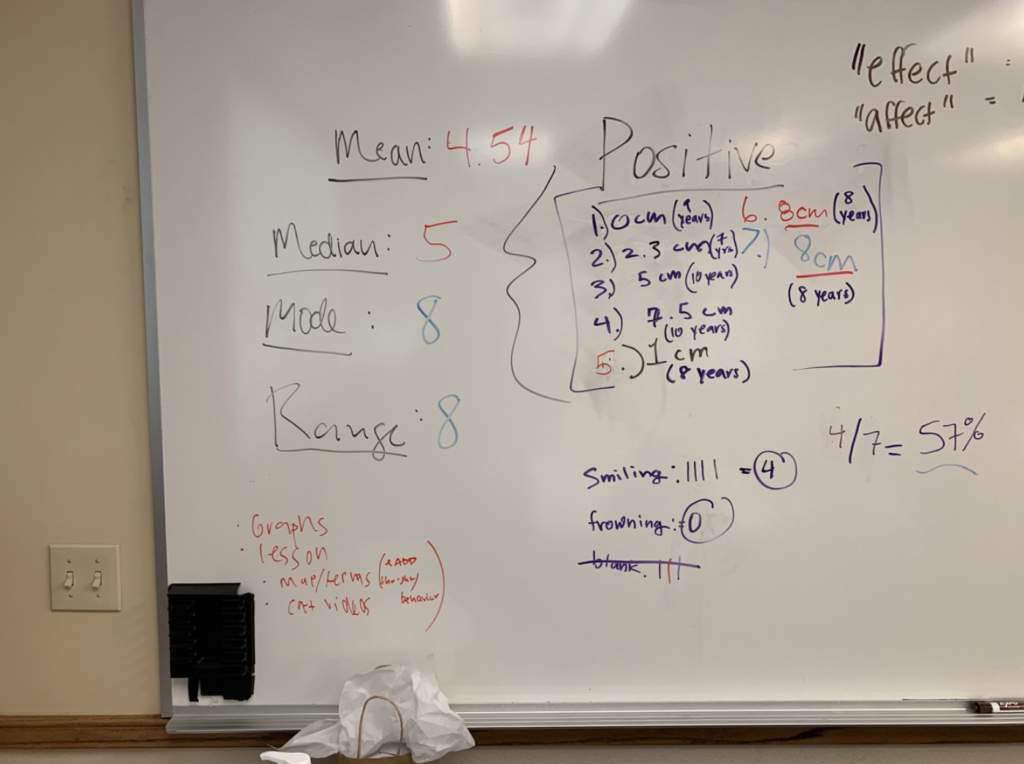 "effect" =
"affect" =
Mean: 4.54
Median: 5
Mode: 8
Range: 8
Positive
1.) 0 cm (9 years)
2.) 2.3 cm (7 yrs)
3.) 5 cm (10 years)
4.) 7.5 cm
(10 years)
5.) 1 cm
(8 years)
6. 8cm (8 years)
7.) 8cm
(8 years)
4/7 = 57%
Smiling: |||| = 4
frowning: = 0
blank. |||
• Graphs
• lesson
• map/terms
• cat videos
behavior